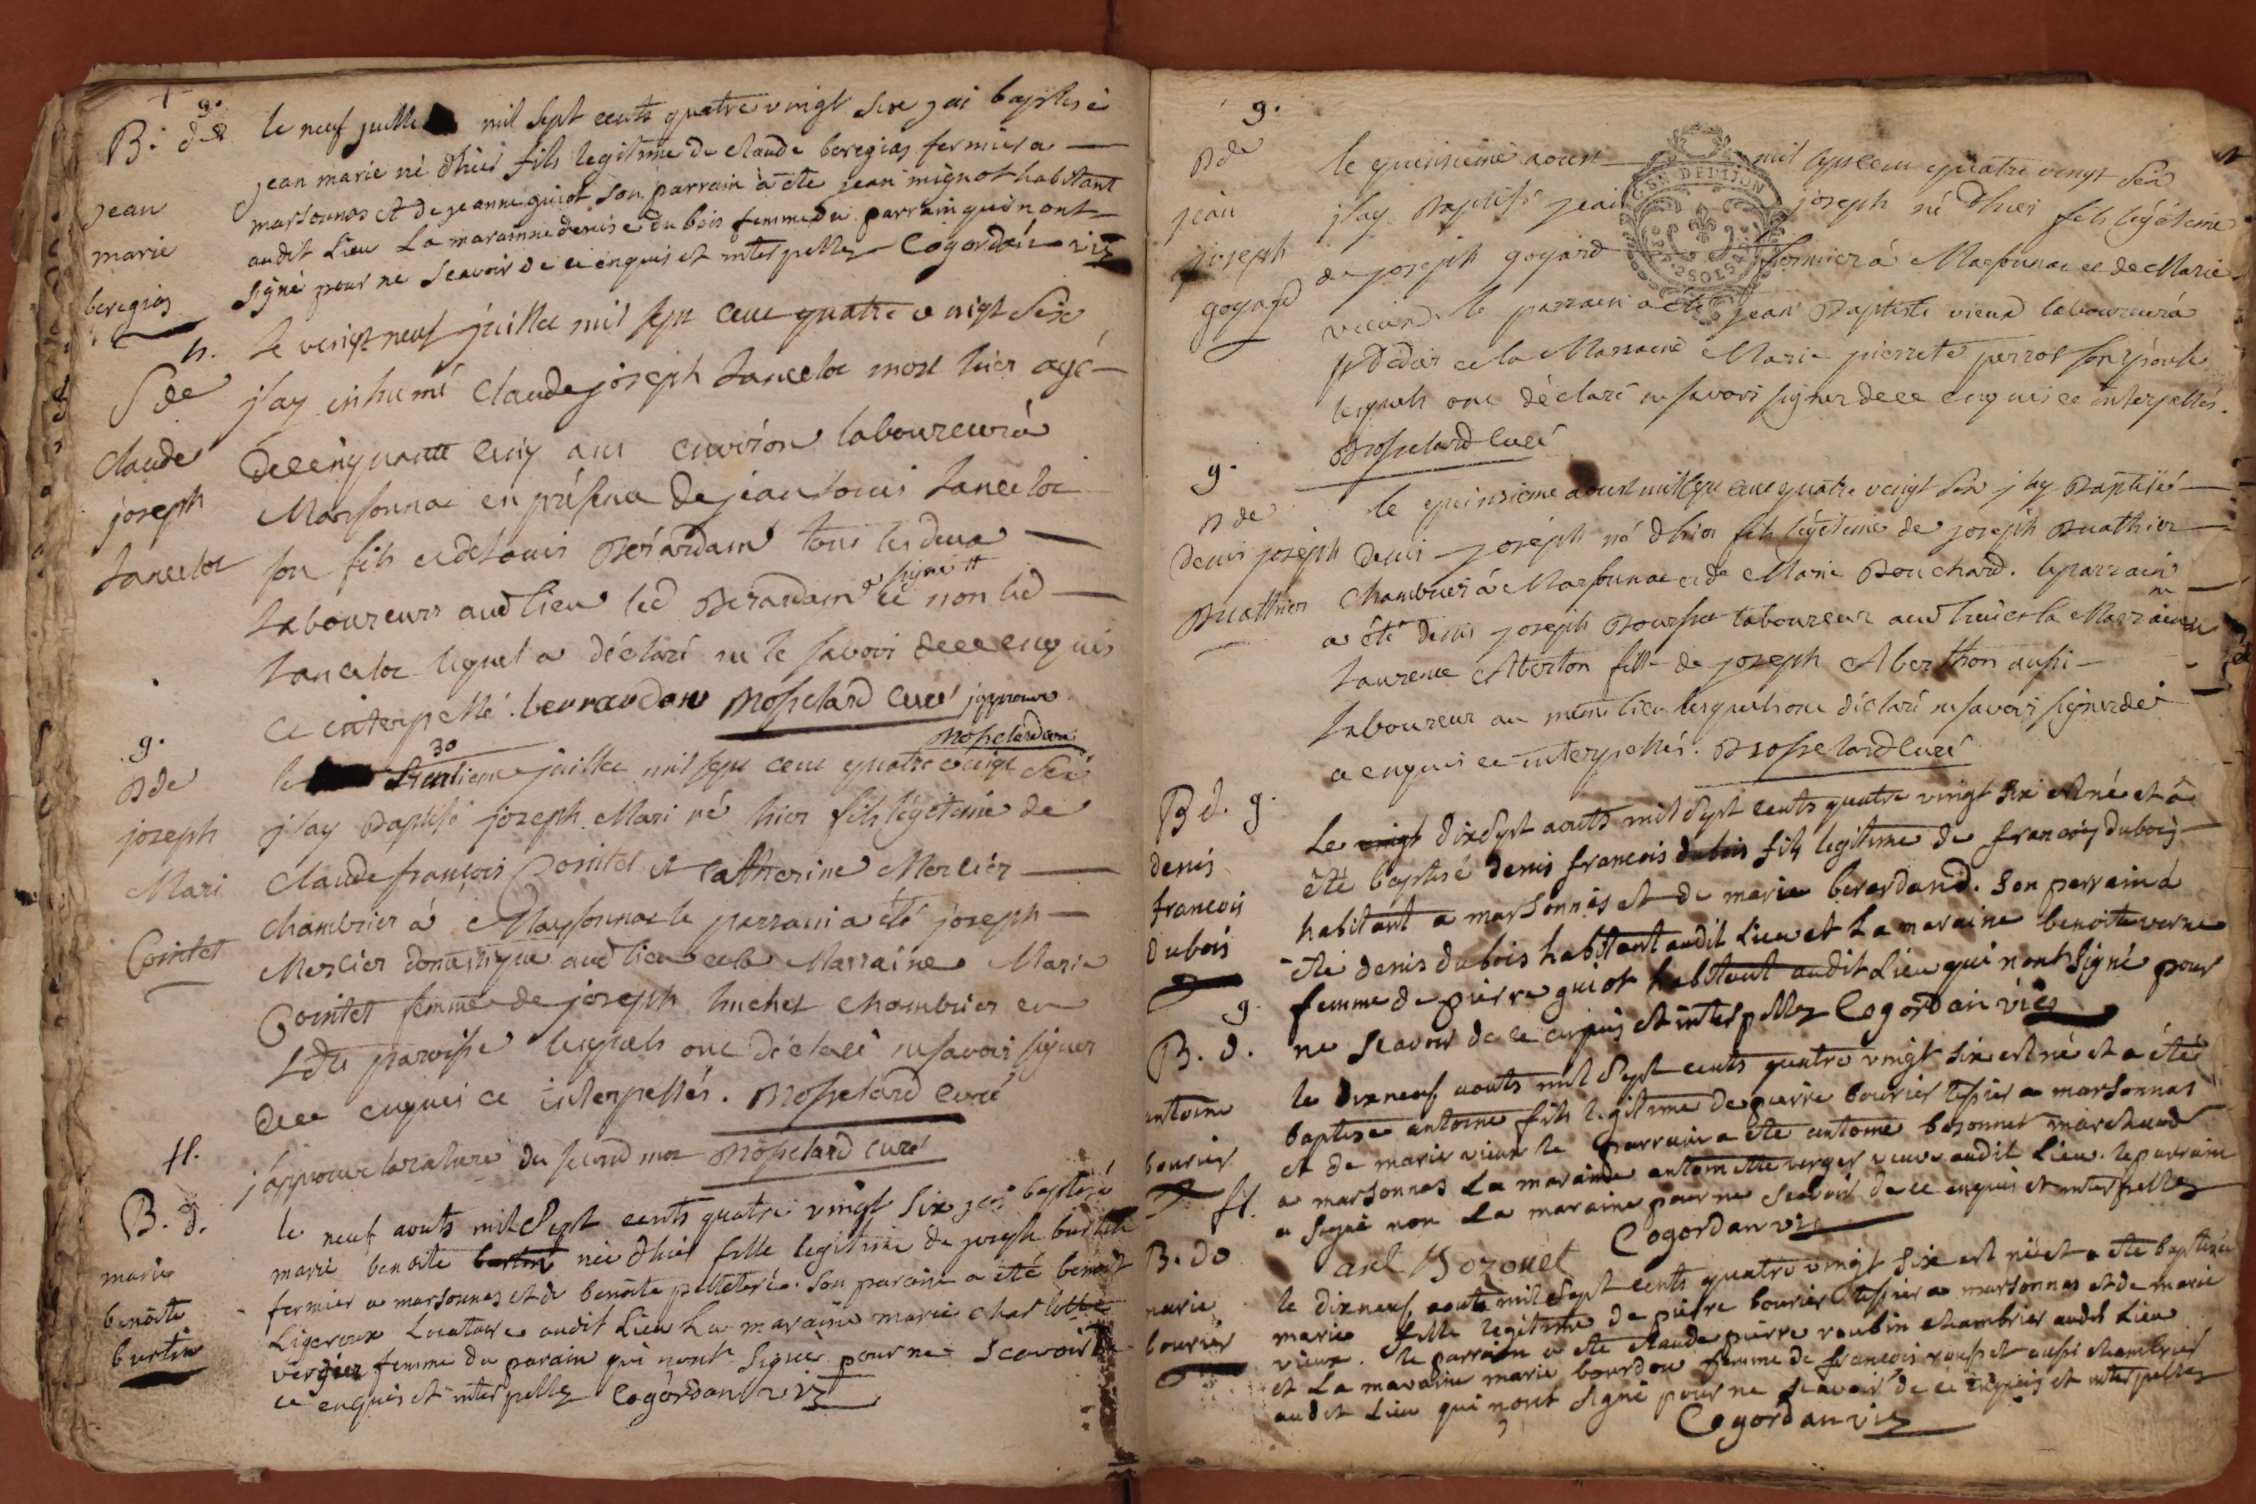 g.
B. de
jean
marie
beregias
le neuf juillet mil sept cents quatre vingt six jai baptisé
jean marie né dhier fils legitime de claude beregias fermier a
marsonnas et de jeanne guiot son parrain a ete jean mignot habitant
audit lieu La maraine denise du bois femme du parrain qui nont
signé pour ne scavoir de ce enquis et interpellez Cogordan vic
h.
S de
Claude
joseph
Lancelot
Le veingt neuf juillet mil sept cent quatre veingt Six
j'ay inhumé Claude joseph Lancelot mort hier agé
de cinquante cinq ans environ laboureur à
Marsonnac en présence de jean Louis Lancelot
son fils et de Louis Bérardam tous les deux
Laboureurs aud lieu led Berardam a signé et non led
Lancelot lequel a déclaré ne le savoir de ce enquis
et interpellé. berrardan Mosselard curé j'approuve
Mosselard curé
g.
B de
joseph
Mari
Cointet
30
le trentieme juillet mil sept cent quatre veingt Six
j'ay Baptisé joseph Mari né hier fils légitime de
Claude françois Cointet et Catherine Mercier
chambrier à Marsonnac le parrain a été joseph
Mercier domestique aud lieu et la Marraine Marie
Cointet femme de joseph huchet chambrier en
Lde paroisse lesquels ont déclaré ne savoir signer
de ce enquis et interpellés. Mosselard curé
j'approuve la rature du second mot Mosselard curé
fl.
B. d.
marie
benoite
burtin
le neuf aouts mil Sept cents quatre vingt Six jai baptisé
marie benoite burtin née dhier fille legitime de joseph burtin
fermier a marsonnas et de benoite pelletere. Son parain a été benoit
Ligeroux Locataire audit Lieu La maraine marie charlotte
vergier femme du parain qui nont Signé pour ne Scavoir de
ce enquis et interpellez Cogordan vic
g.
B de
jean
joseph
goyard
le quinsieme aoust mil sept cent quatre veingt Six
j'ay Baptisé jean joseph né d'hier fils légitime
de joseph goyard fermier à Marsonnac et de Marie
vieux. le parrain a été jean Baptiste vieux laboureur à
et la Marraine Marie pierrete perrot son épouse
lesquels ont déclaré ne savoir signer de ce enquis et interpellés.
Mosselard curé
g.
B de
Denis joseph
Buathier
le quinsieme aoust mil sept cent quatre veingt Six j'ay Baptisé
Denis joseph né d'hier fils légitime de joseph Buathier
Chambrier à Marsonnac et de Marie Bouchard. le parrain
a été Denis joseph laboureur aud lieu et la Marraine
Laurence Aberton fille de joseph Aberthon aussi
Laboureur au meme lieu lesquels ont déclaré ne savoir signer de
ce enquis et interpellés. Mosselard curé
B d. g.
denis
francois
dubois
Le vingt dix Sept aouts mil Sept cents quatre vingt Six est né et a
été baptisé denis francois dubois fils legitime de francois dubois
habitant a marsonnas et de marie berardand. Son parrain a
été denis dubois habitant audit Lieu et La maraine benoite verne
femme de pierre guiot habitant audit Lieu qui nont Signé pour
ne Scavoir de ce enquis et interpellez Cogordan vic
g.
B. d.
antoine
bourier
le dix neuf aouts mil Sept cents quatre vingt Six est né et a été
baptisé antoine fils legitime de pierre bourier tissier a marsonnas
et de marie vieux le parrain a ete antoine bozonnet marchand
a marsonnas La maraine antoinette verger veuve audit Lieu. le parrain
a Signé non La maraine pour ne Scavoir de ce enquis et interpellez
Cogordan vic
ant Bozonet
fl.
B. de
marie
bourier
le dix neuf aouts mil Sept cents quatre vingt Six est né et a ete baptisée
marie fille legitime de pierre bourier tissier a marsonnas et de marie
vieux. le parrain a ete claude pierre roubin chambrier audit Lieu
et La maraine marie bourdon femme de francois rousset aussi chambrier
audit Lieu qui nont Signé pour ne Scavoir de ce enquis et interpellez
Cogordan vic